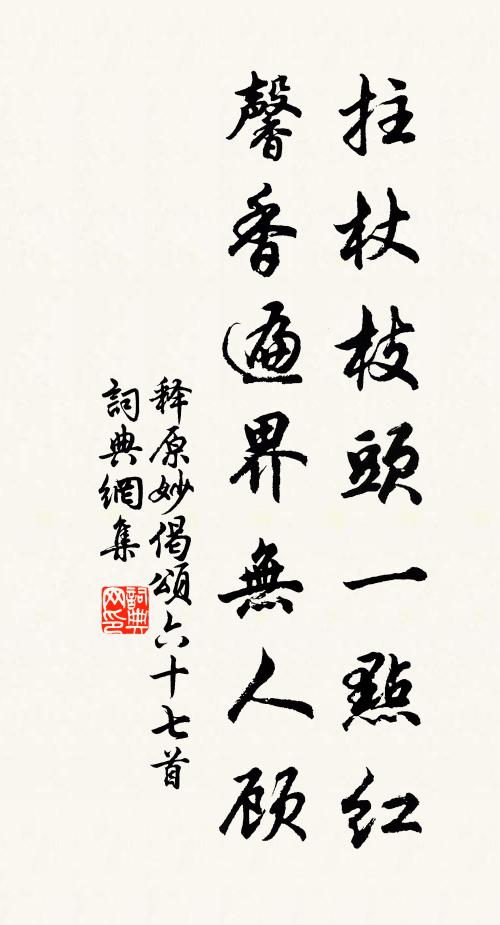 拄杖枝頭一點紅
馨香遍界無人顾
释原妙偈颂六十七首
詞典網集
詞典网印